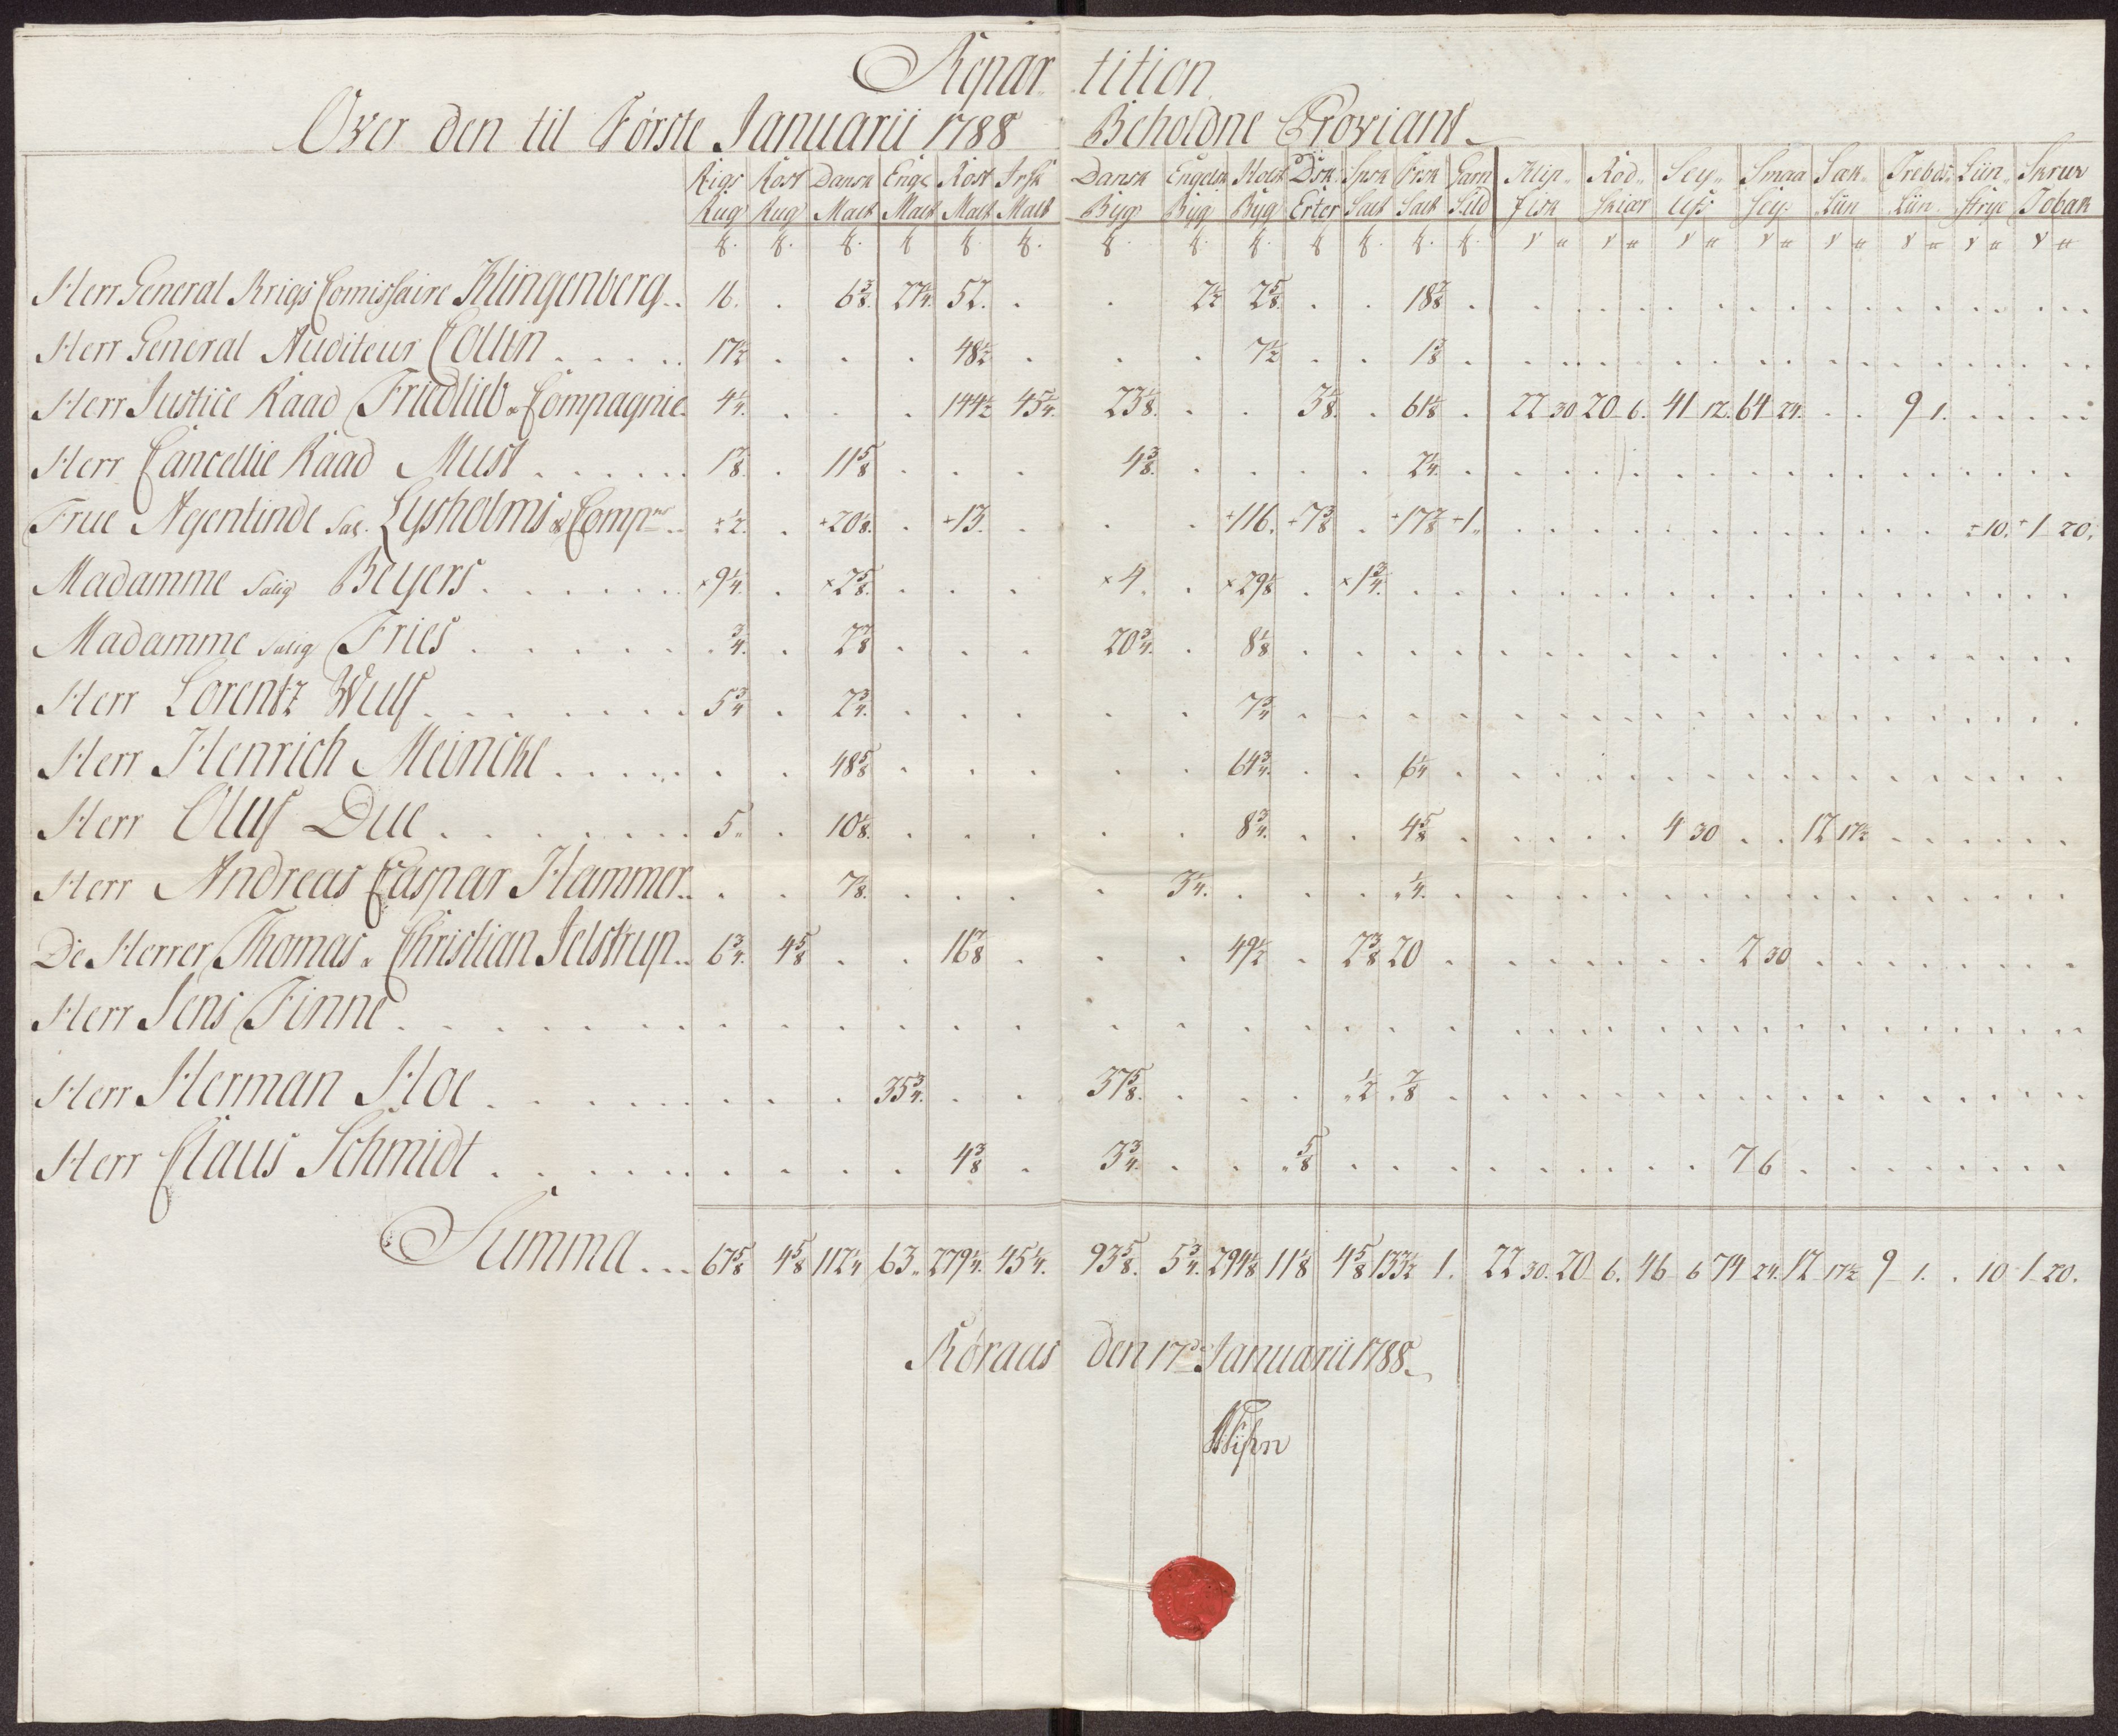 Repartition
Over den til Første Januarii 1788 Beholdne Proviant
Rigs Rost Dansk Engl Rost Irsk Dansk Engelsk Holst Dsk. Spsk Frsk Garn Klip Rød Sey Smaa Sæk Trebds Liin Skruv
Rug Rug Malt Malt Malt Malt Byg Byg Byg Erter Salt Salt Sild Fisk Skiær Ufs Sey Liin Liin Strye Tobak
Herr General Krigs Comissaire Klingenberg 16. 6 3/8. 27 1/4. 52. 2 1/2 2 5/8. 18 7/8
Herr General Auditeur Collin 17 1/2 48 1/2 7 1/2 1 3/8
Herr Justice Raad Friedlieb & Compagnie 4 1/4. 144 1/2 45 1/4. 23 1/8. 3 1/8. 61 1/8 22 30 20 6. 41 12. 64 24. 9 1.
Herr Cancellie Raad Must 1 7/8. 11 5/8 4 3/8. 2 1/4.
Frue Agentinde Sal. Lysholms & Comp +1/2. +20 1/8. +13. +116. +7 3/8 +17 7/8 +1. +10. +1 20.
Madamme Salig Beyers ×9 1/4. ×2 5/8. ×4. ×29 1/8 ×1 3/4.
Madamme Salig Fries 3/4. 2 7/8 20 3/4. 8 1/8
Herr Lorentz Wulf 5 3/4 2 3/4. 7 3/4
Herr Henrich Meincke 48 5/8 64 3/4. 6 1/4
Herr Oluf Due 5. 10 1/8. 8 3/4. 4 5/8 4 30 12 17 1/2
Herr Andreas Caspar Hammer 7 1/8. 3 1/4. 1/4.
De Herrer Thomas & Christian Jelstrup 6 3/4. 4 5/8 16 7/8 49 1/2 2 3/8 20 2 30
Herr Jens Finne
Herr Herman Hoe 35 3/4. 37 5/8. 1/2 7/8
Herr Claus Schmidt 4 3/8 3 3/4. 5/8 7 6
Summa 67 5/8 4 5/8 112 1/4 63. 279 1/4. 45 1/4. 93 5/8. 5 3/4. 294 1/8 11 1/8 4 5/8 133 1/2 1. 22 30. 20 6. 46 6 74 24. 12 17 1/2 9 1. 10 1 20.
Røraas den 17de Januarii 1788